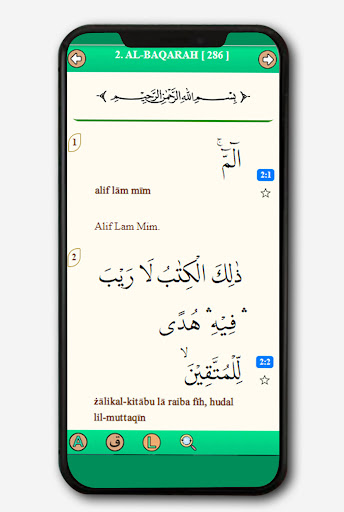 2. AL-BAQARAH [ 286 ]
بِسْمِ اللهِ الرَّحْمٰنِ الرَّحِيْمِ
1
الۤمّۤ ۚ
2:1
alif lām mīm
Alif Lam Mim.
2
ذٰلِكَ الْكِتٰبُ لَا رَيْبَ
ۛ فِيْهِ ۛ هُدًى
لِّلْمُتَّقِيْنَۙ
2:2
żālikal-kitābu lā raiba fīh, hudal
lil-muttaqīn
A ق L